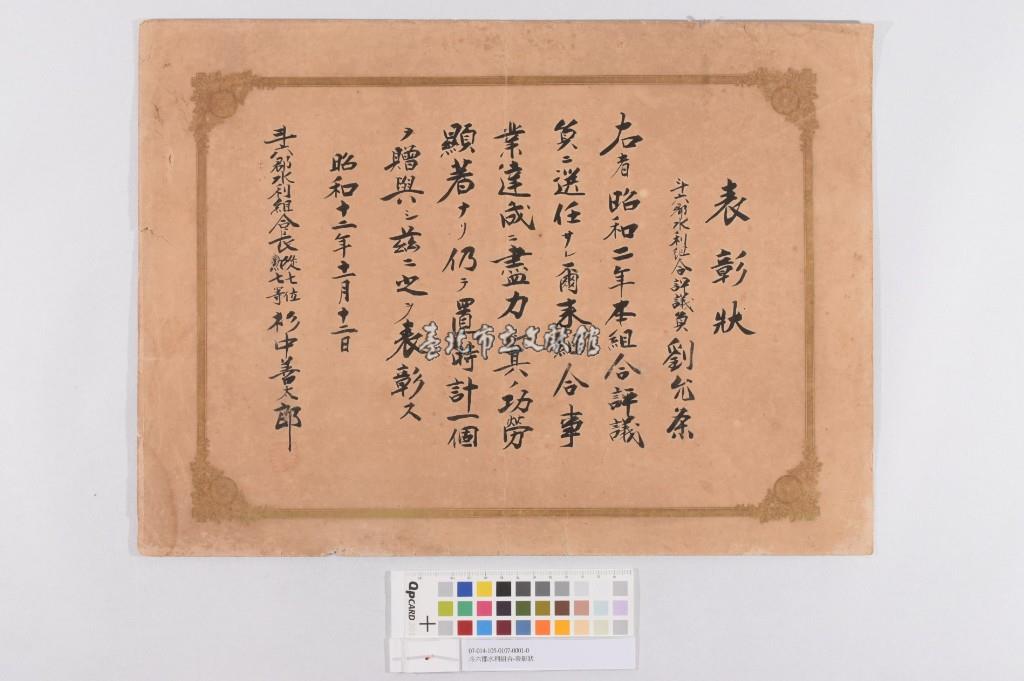 表彰狀
斗六郡水利組合評議員 劉允
右者昭和二年本組合評議
員ニ選任サレ爾来組合事
業達成ニ盡力其ノ功勞
顯著ナリ仍テ置時計一個
ヲ贈與シ茲ニ之ヲ表彰ス
昭和十二年十二月十二日
斗六郡水利組合長 從七位 勲七等 杉中善太郎
臺北市立文獻館
QPCARD
07-014-105-0107-0001-0
斗六郡水利組合-表彰狀